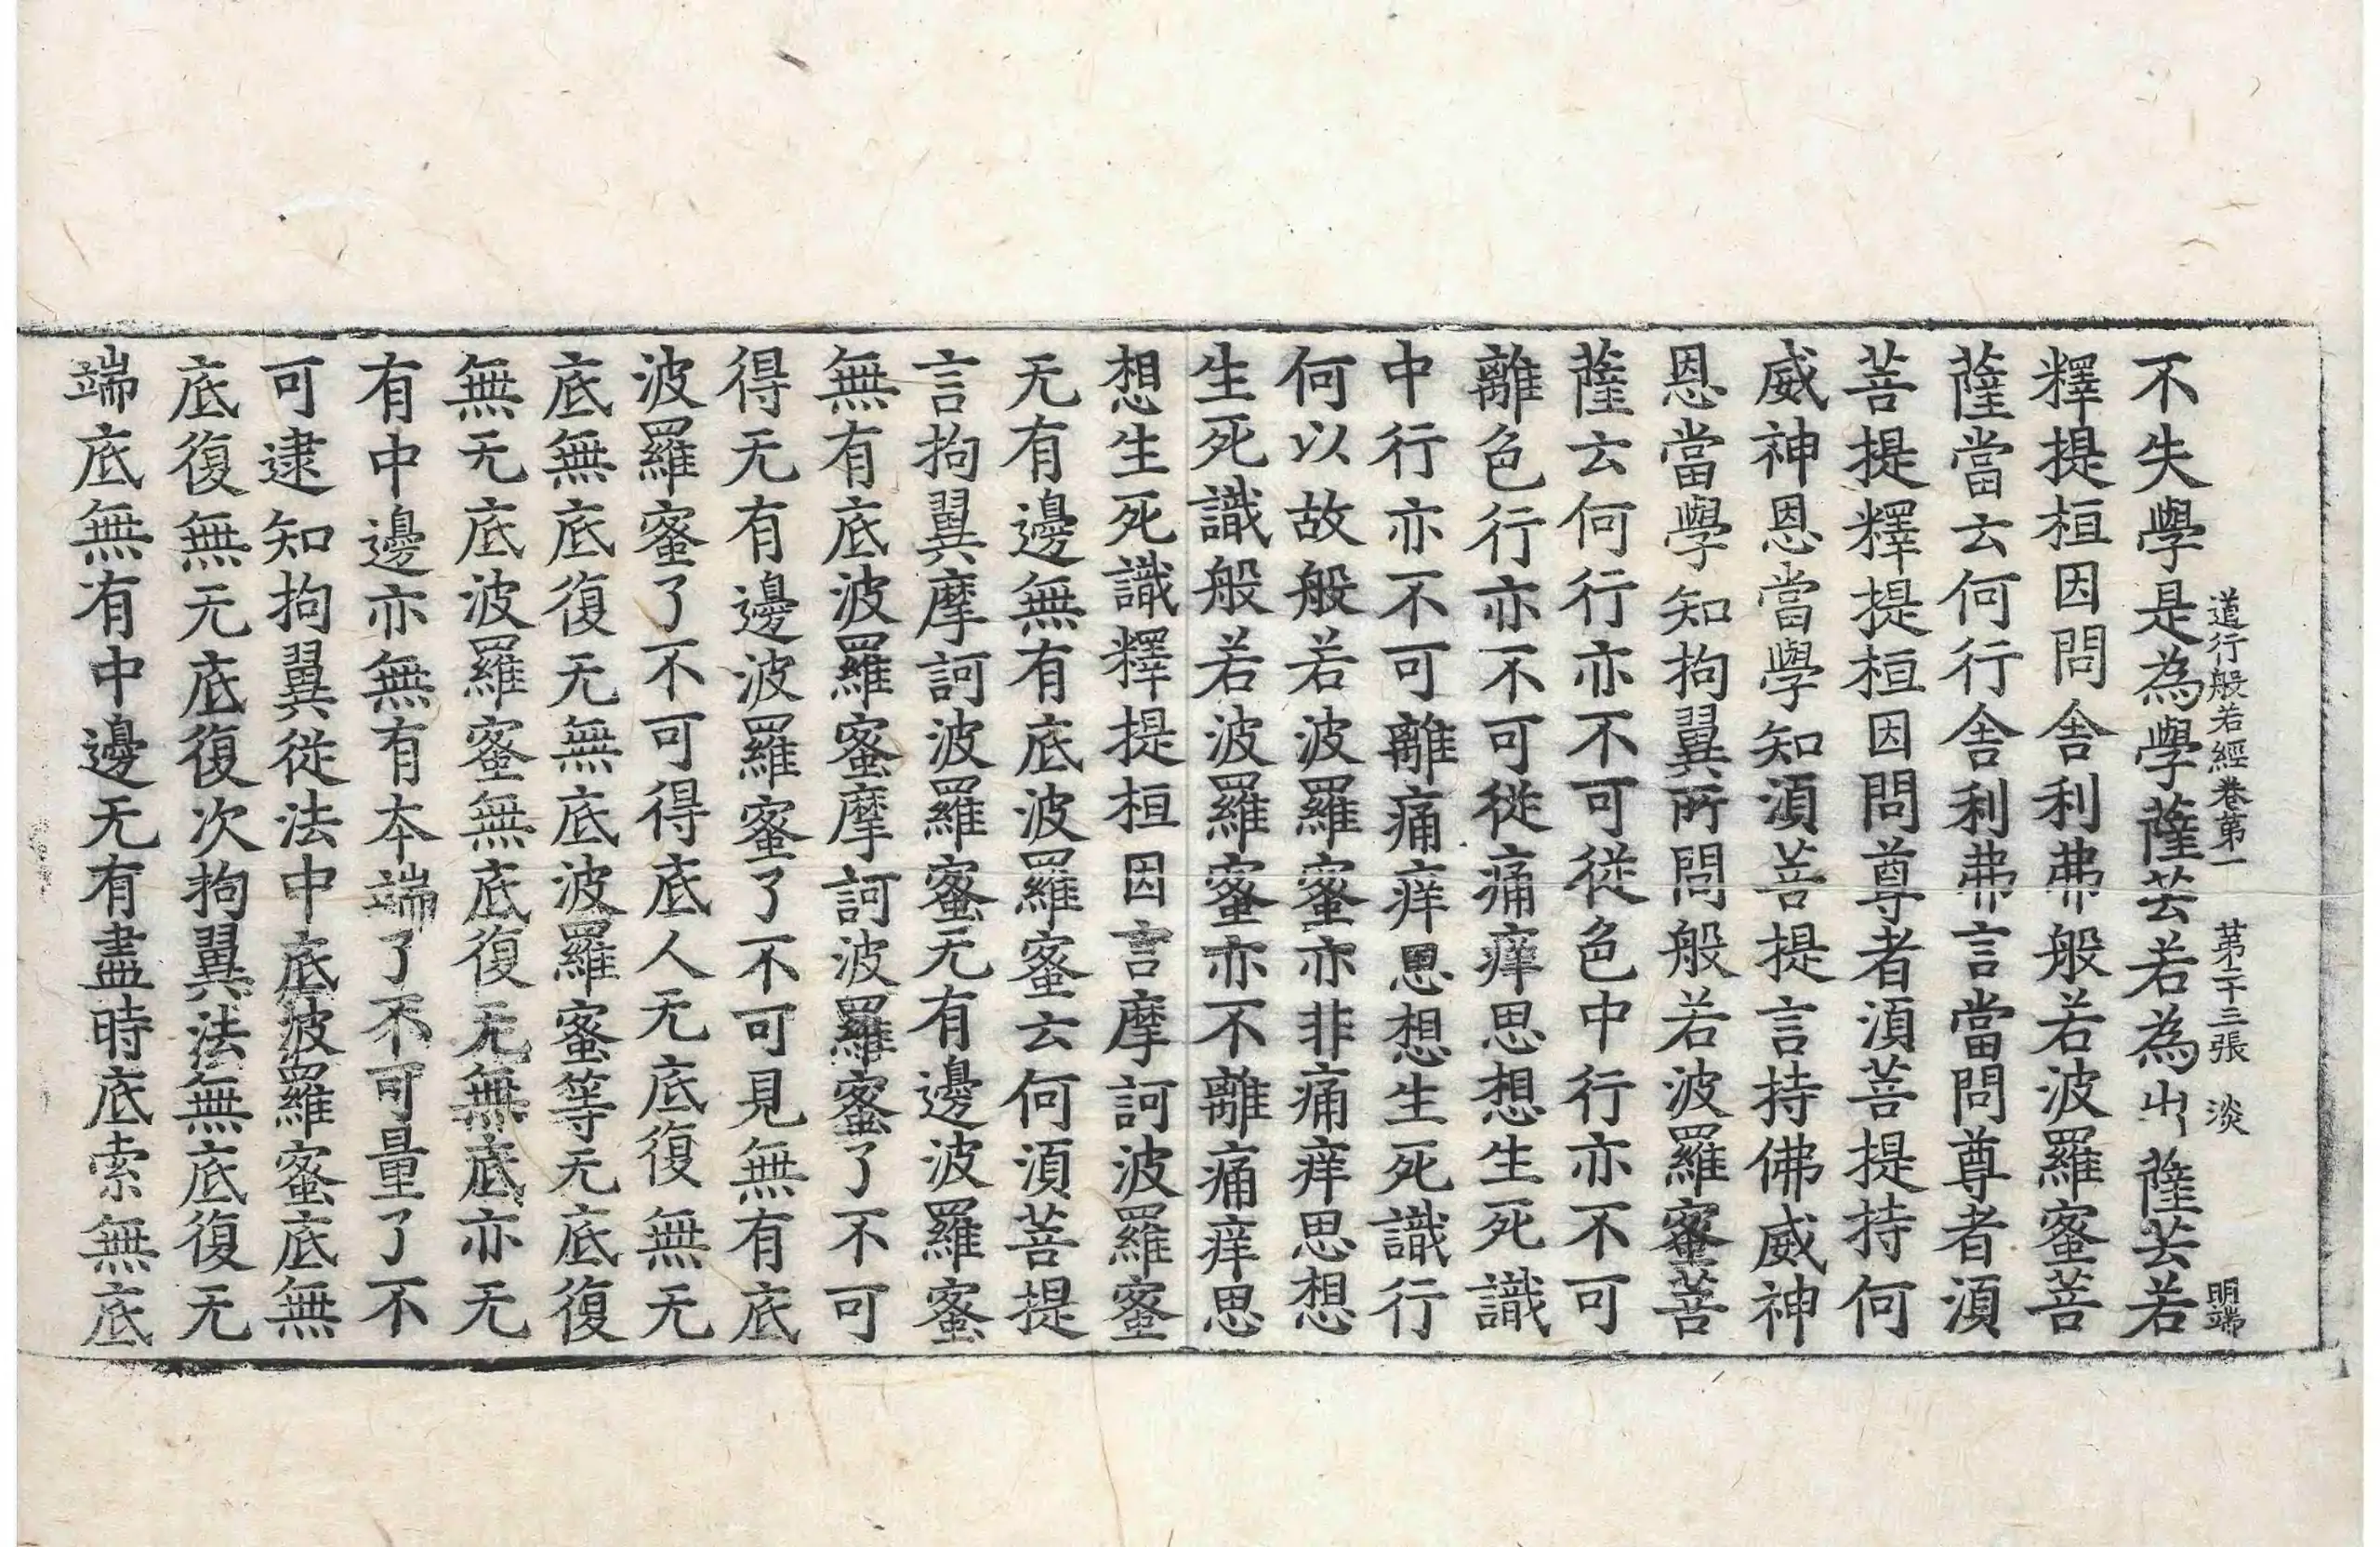 道行般若經卷第一 第二十三張 淡 明端
不失學是為學薩芸若為出薩芸若
釋提桓因問舍利弗般若波羅蜜菩
薩當云何行舍利弗言當問尊者須
菩提釋提桓因問尊者須菩提持何
威神恩當學知須菩提言持佛威神
恩當學知拘翼所問般若波羅蜜菩
薩云何行亦不可從色中行亦不可
離色行亦不可從痛痒思想生死識
中行亦不可離痛痒思想生死識行
何以故般若波羅蜜亦非痛痒思想
生死識般若波羅蜜亦不離痛痒思
想生死識釋提桓因言摩訶波羅蜜
无有邊無有底波羅蜜云何須菩提
言拘翼摩訶波羅蜜无有邊波羅蜜
無有底波羅蜜摩訶波羅蜜了不可
得无有邊波羅蜜了不可見無有底
波羅蜜了不可得底人无底復無无
底無底復无無底波羅蜜等无底復
無无底波羅蜜無底復无無底亦无
有中邊亦無有本端了不可量了不
可逮知拘翼從法中底波羅蜜底無
底復無无底復次拘翼法無底復无
端底無有中邊无有盡時底索無底